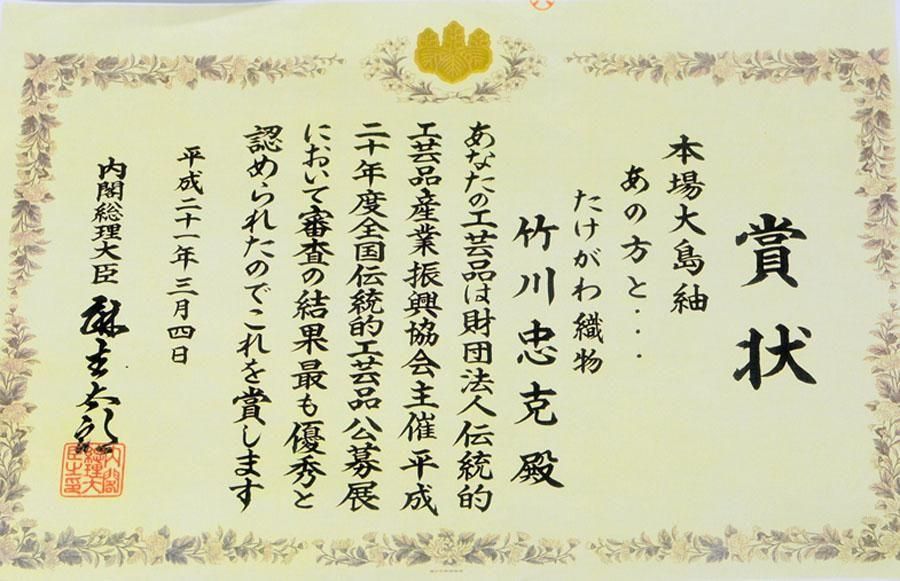 賞状
本場大島紬
あの方と・・・
たけがわ織物
竹川忠克殿
あなたの工芸品は財団法人伝統的
工芸品産業振興協会主催平成
二十年度全国伝統的工芸品公募展
において審査の結果最も優秀と
認められたのでこれを賞します
平成二十一年三月四日
内閣総理大臣 麻生太郎
内閣総理大臣之印